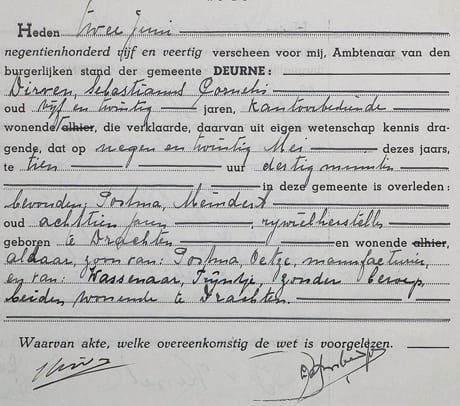 Heden twee Juni
negentienhonderd vijf en veertig verscheen voor mij, Ambtenaar van den
burgerlijken stand der gemeente DEURNE:
Dirven, Sebastianus Cornelis
oud vijf en twintig jaren, kantoorbediende
wonende alhier, die verklaarde, daarvan uit eigen wetenschap kennis dra-
gende, dat op negen en twintig Mei dezes jaars,
te tien uur dertig minuten
in deze gemeente is overleden:
bevonden: Postma, Meindert
oud achttien jaren, rijwielhersteller
geboren te Drachten en wonende alhier,
aldaar, zoon van: Postma, Oetze, manufacturier,
en van: Wassenaar, Tjijntje, zonder beroep,
beiden wonende te Drachten.
Waarvan akte, welke overeenkomstig de wet is voorgelezen.